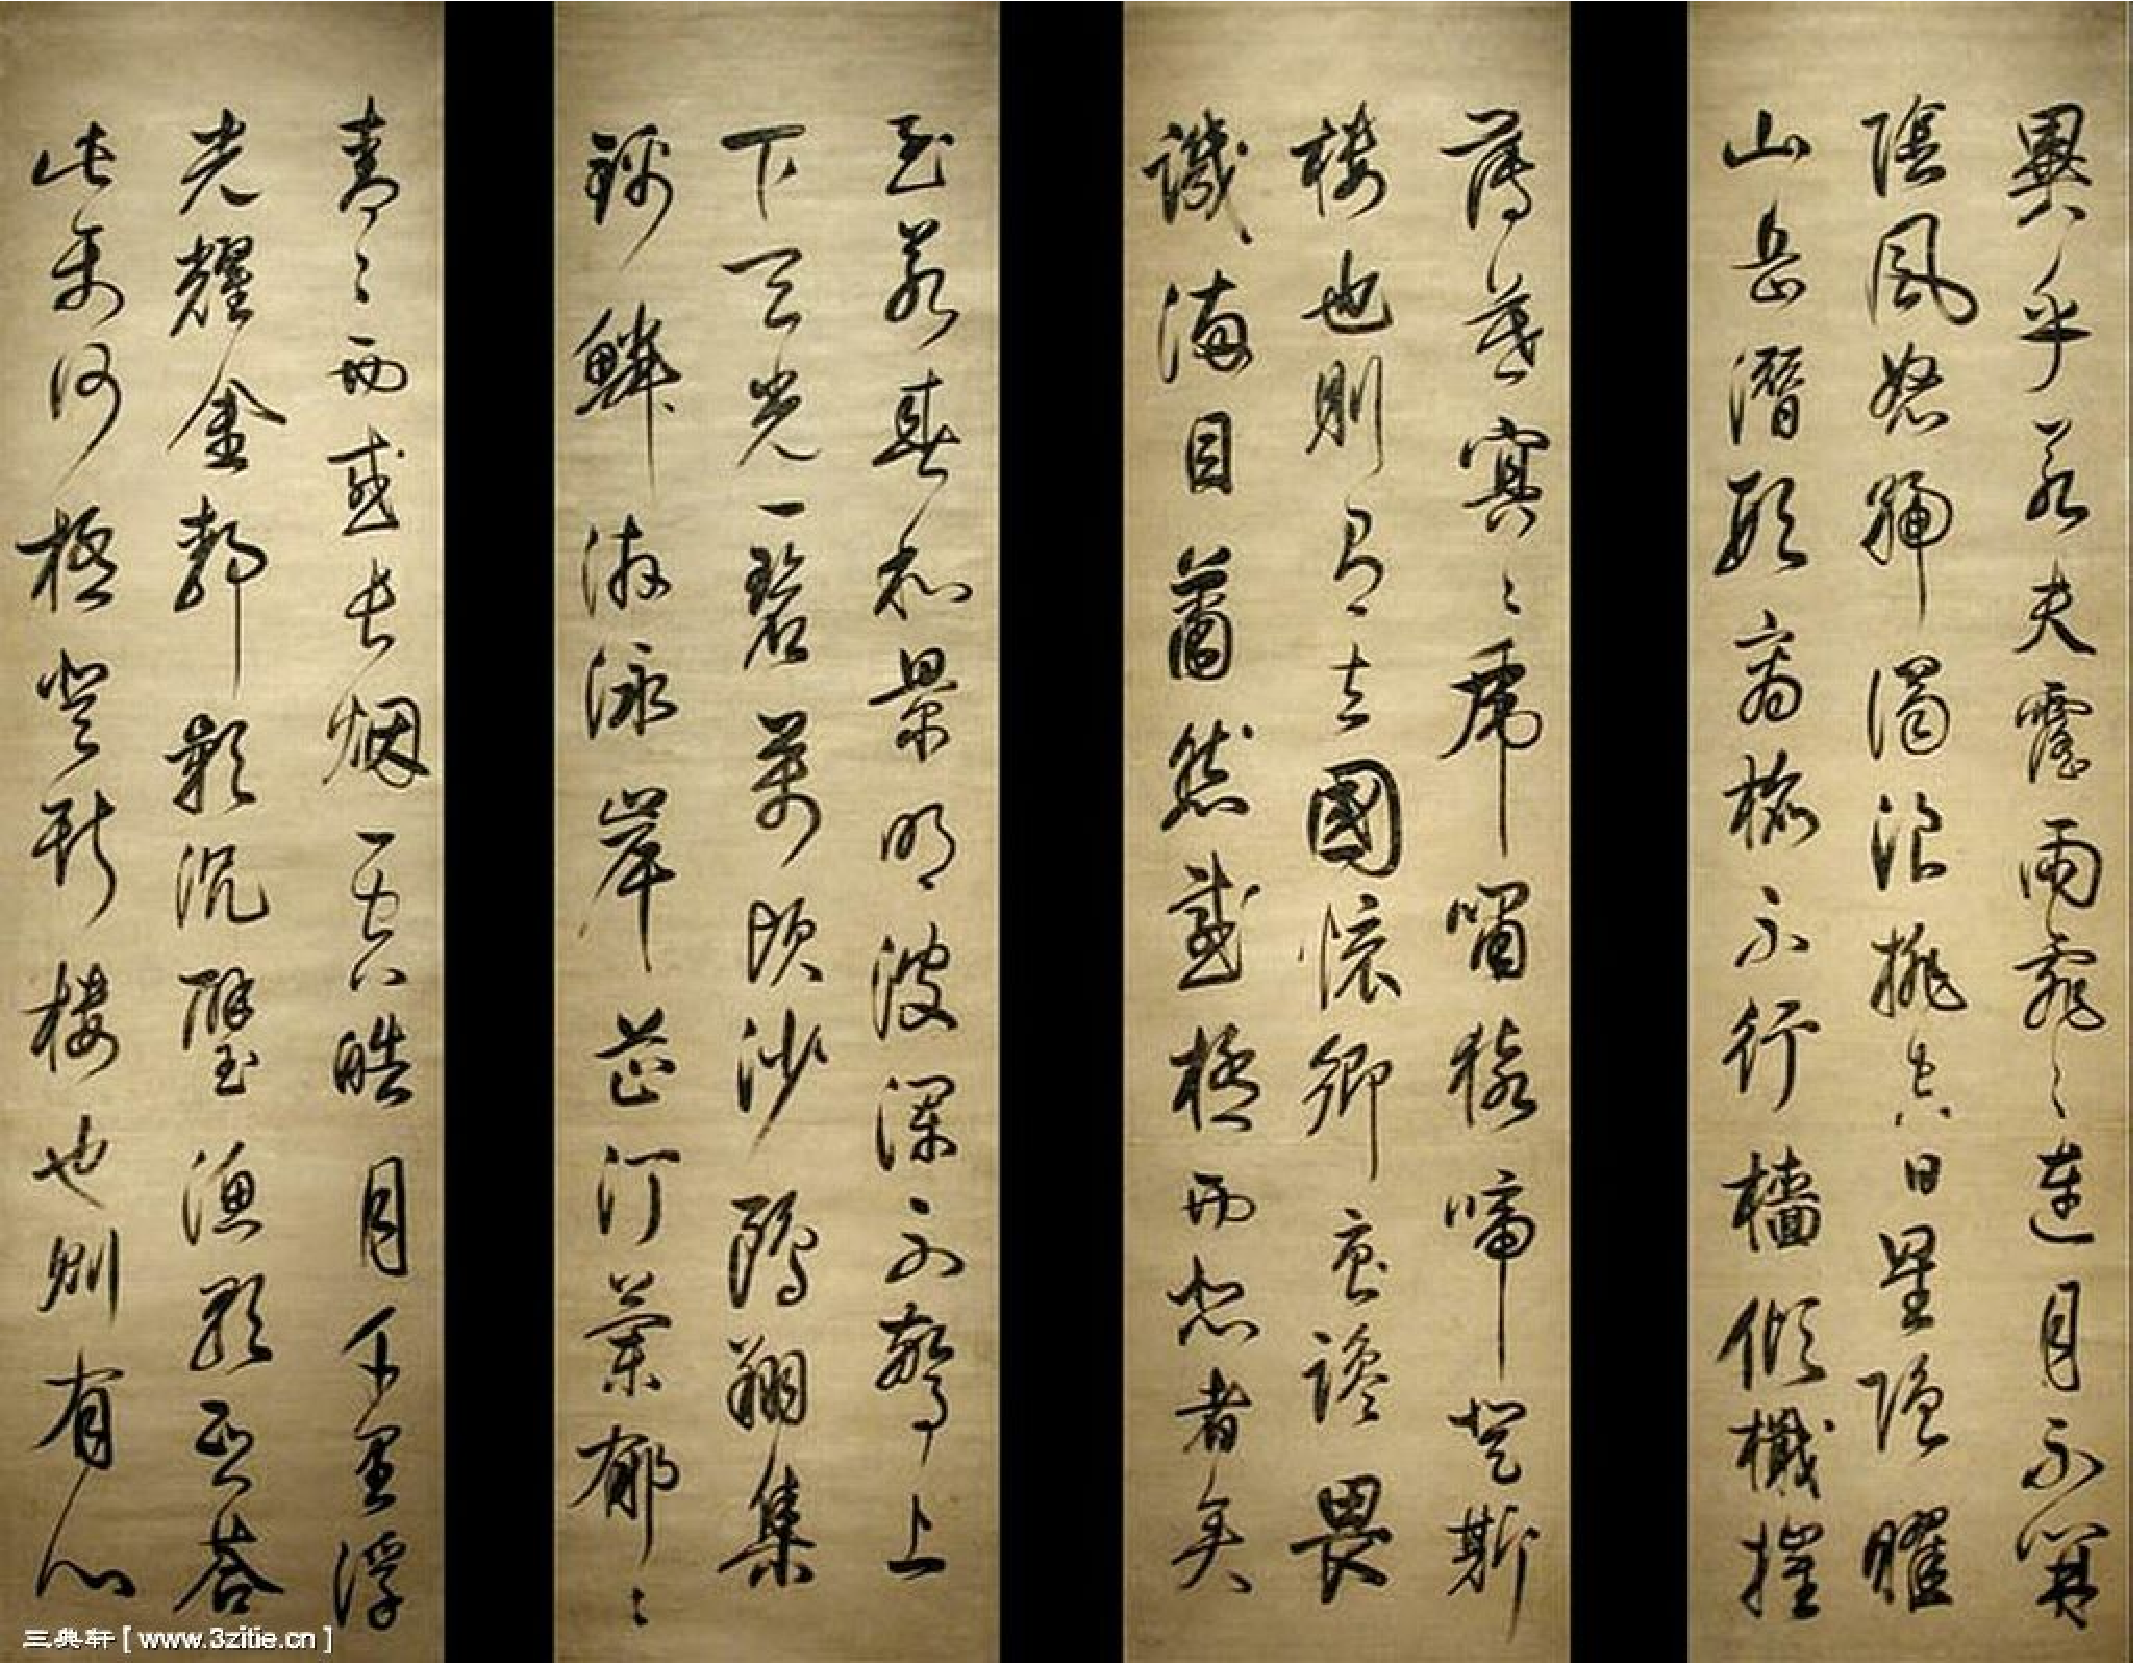 異乎若夫霪雨霏〻連月不開
陰風怒號濁浪排空日星隱曜
山岳潛形商旅不行檣傾檝摧
薄暮冥〻虎嘯猿啼登斯
樓也則有去國懷鄉憂讒畏
譏滿目蕭然感極而悲者矣
至若春和景明波瀾不驚上
下天光一碧萬頃沙鷗翔集
錦鱗游泳岸芷汀蘭郁〻
青〻而或長烟一空皓月千里浮
光耀金靜影沉璧漁歌互答
此樂何極登斯樓也則有心
三典轩 [ www.3zitie.cn ]